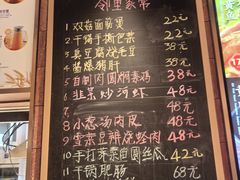 邻里家常
1 双菇面筋煲 22元
2 干锅手撕包菜 22元
3 臭豆腐烧毛豆 38元
4 酱爆猪肝 38元
5 自制肉圆焖素鸡 38元
6 韭菜炒河虾 48元
小葱汤肉皮 48元
9 雪菜豆瓣烧鮰肉 48元
10 手打芽菜肉圆丝瓜 42元
11 干锅肥肠 68元